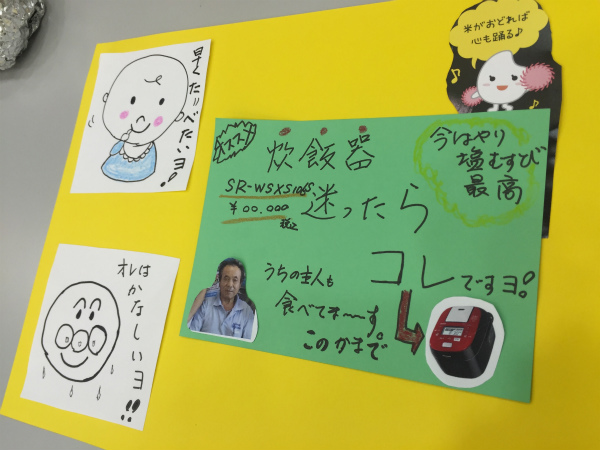 早くた〃べたいヨ。
米がおどれば
心も踊る♪
オススメ
炊飯器
SR-WSXS10
¥00.000
税込
迷ったら
コレですヨ。
今はやり
塩むすび
最高
うちの主人も
食べてま〜す。
このかまで
オレは
かなしいヨ!!